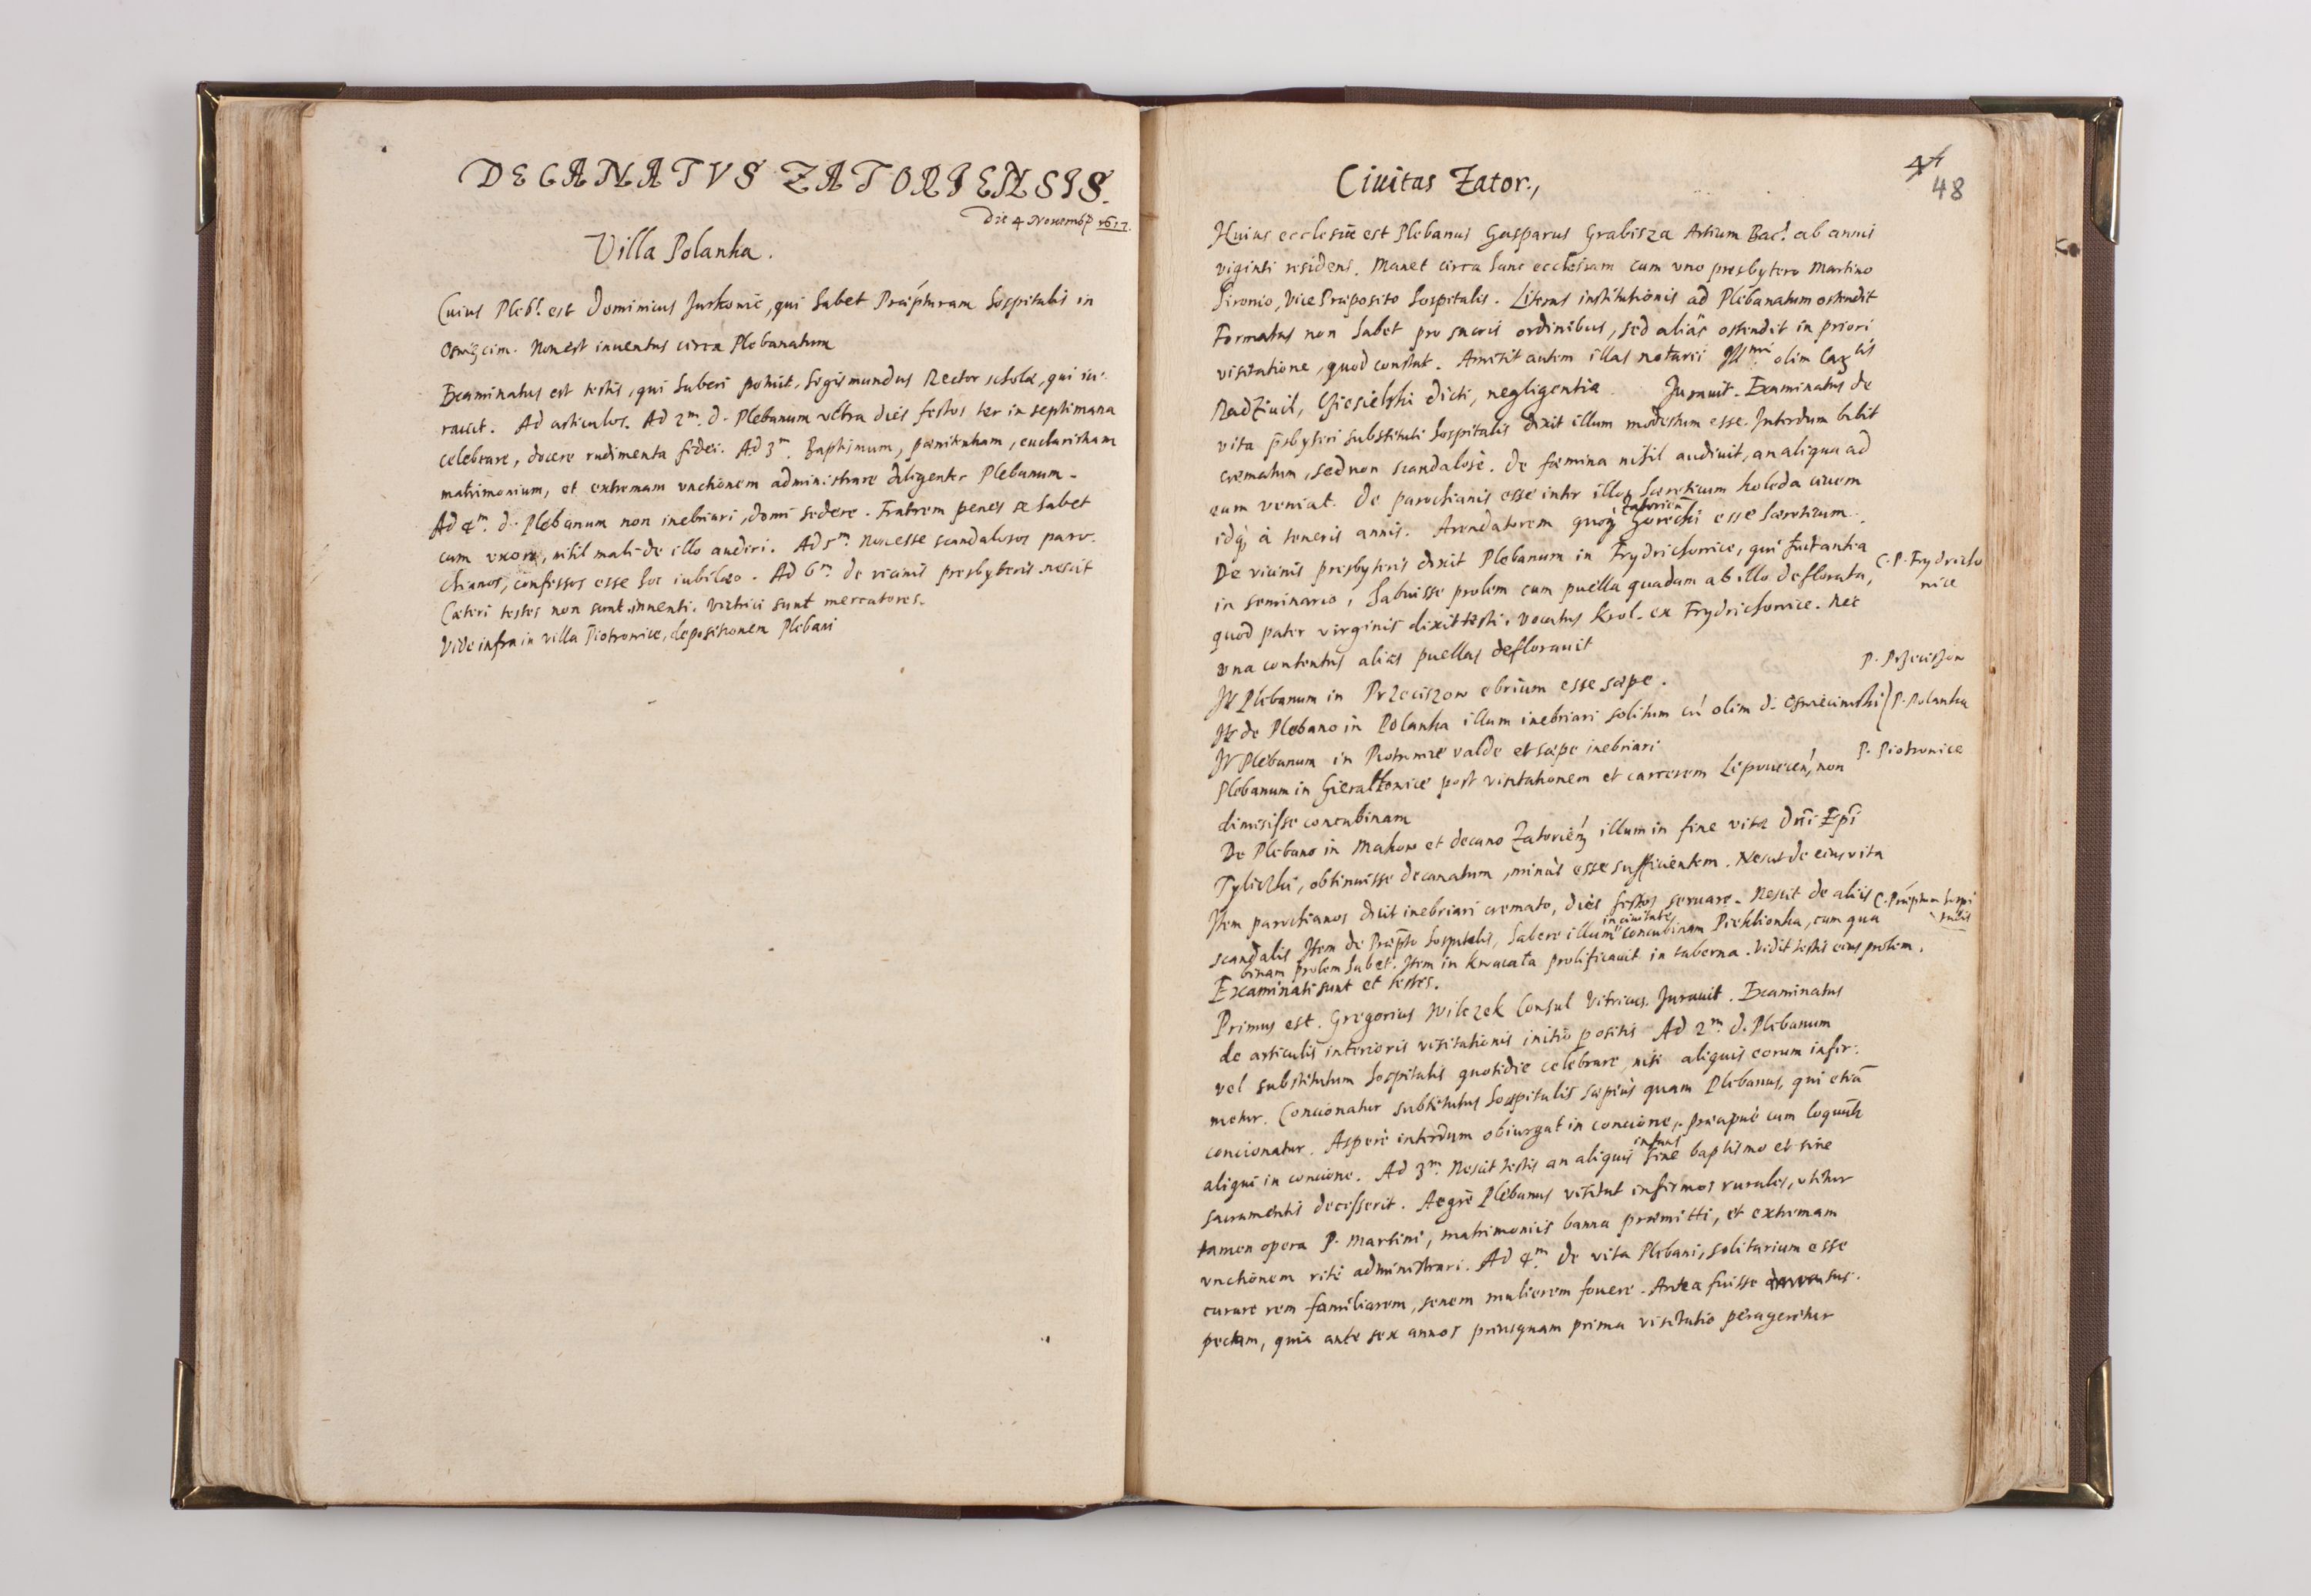 DECANATVS ZATORIENSIS.
Die 4 Novemb. 1617.
Villa Polanka.
Cuius Pleb. est Dominicus Jurkowic, qui habet Præpturam hospitalis in
Oswięcim. Non est inuentus circa Plebanatum
Examinatus est testis, qui haberi potuit, Sigismundus Rector scholæ, qui iu-
rauit. Ad articulos. Ad 2m. d. Plebanum vltra dies festos ter in septimana
celebrare, docere rudimenta fidei. Ad 3m. Baptismum, pænitentiam, eucharistiam
matrimonium, et extremam vnctionem administrare diligenter Plebanum.
Ad 4m. d. Plebanum non inebriari, domi sedere. Fratrem penes se habet
cum vxore, nihil mali de illo audiri. Ad 5m. Non esse scandalosos paro-
chianos, confessos esse hoc iubilæo. Ad 6m. de vicinis presbyteris nescit
Cæteri testes non sunt inuenti. Vitrici sunt mercatores.
Vide infra in villa Piotrowice, depositionem Plebani
Ciuitas Zator.,
44
48
Huius ecclesiæ est Plebanus Gasparus Grabisza Artium Bac. ab annis
viginti residens. Manet circa hanc ecclesiam cum vno presbytero Martino
Vice Præposito hospitalis. Literas institutionis ad Plebanatum ostendit
Formatas non habet pro sacris ordinibus, sed alias ostendit in priori
visitatione, quod constat. Amisit autem illas notarii Illmi olim
Radziuil, Ciesielski dicti, negligentia. Jurauit. Examinatus de
vita psbyteri substituti hospitalis dixit illum modestum esse. Interdum bibit
crematum, sed non scandalosè. De fæmina nihil audiuit, an aliqua ad
eum veniat. De parochianis esse inter illos hæreticum Koloda ciuem
idq. à teneris annis. Arendatorem Zatorien Gorecki esse hæreticum.
De vicinis presbyteris dixit Plebanum in Frydrichowice, qui fuit antea
C. P. Frydricho
wice
in seminario, habuisse prolem cum puella quadam ab illo deflorata,
quod pater virginis dixit testi, vocatus Krol. ex Frydrichowice. Nec
vna contentus alias puellas deflorauit
P. Przeciszow
It Plebanum in Przeciszow ebrium esse sæpe.
It de Plebano in Polanka illum inebriari solitum cu olim d. Oswiecimski
P. Polanka
It Plebanum in Piotrowice valde et sæpe inebriari
P. Piotrowice
Plebanum in Gieraltowice post visitationem et carcerem Lipouecen, non
dimisisse concubinam
De Plebano in Makow et decano Zatorien illum in fine vitæ Dni Epi
Tylicki, obtinuisse decanatum, minùs esse sufficientem. Nescit de eius vita
Item parochianos dicit inebriari cremato, dies festos seruare. Nescit de aliis
C. Præptum hospi
talis
scandalis Item de Præpto hospitalis, habere illum in ciuitate concubinam Pieklionka, cum qua
binam prolem habet. Item in Krucata prolificauit in taberna. Vidit testis eius prolem.
Examinati sunt et testes.
Primus est. Gregorius Wilczek Consul Vitricus. Jurauit. Examinatus
de articulis interioris visitationis initio positis Ad 2m. d. Plebanum
vel substitutum hospitalis quotidie celebrare, nisi aliquis eorum infir-
metur. Concionatur substitutus hospitalis sæpius quam Plebanus, qui etiã
concionatur. Asperè interdum obiurgat in concione, præcipuè cum loquũtur
aliqui in concione. Ad 3m. Nescit testis an aliquis infans sine baptismo et sine
sacramentis decesserit. Aegrè Plebanus visitat infirmos rurales, vtitur
tamen opera P. Martini, matrimoniis banna præmitti, et extremam
vnctionem ritè administrari. Ad 4m. de vita Plebani, solitarium esse
curare rem familiarem, senem mulierem fouere. Antea fuisse sus-
pectam, quia ante sex annos priusquam prima visitatio perageretur